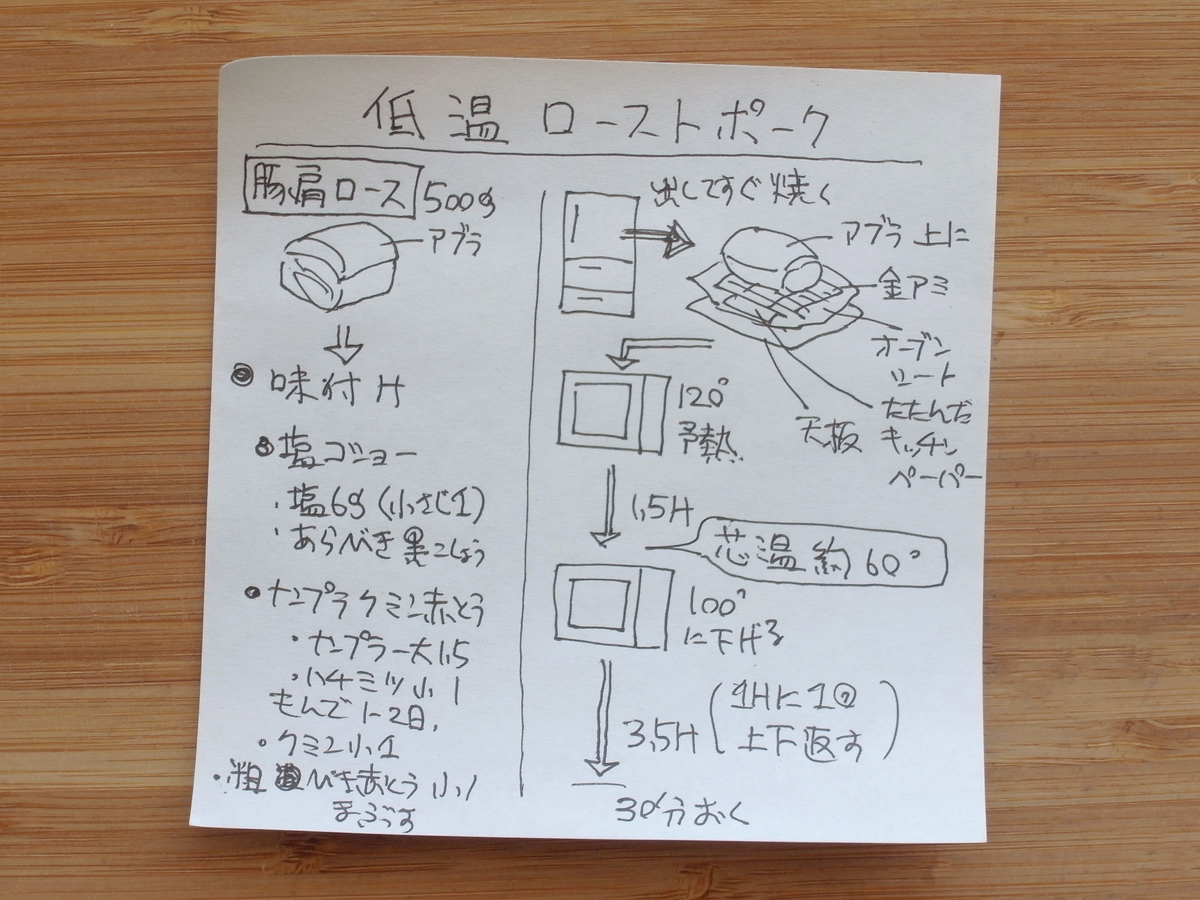 低温ローストポーク
豚肩ロース 500g
アブラ
味付け
塩ゴショー
・塩6g(小さじ1)
・あらべき黒こしょう
ナンプラクミン赤とう
・ナンプラー大1,5
・ハチミツ小1
もんで1-2日,
・クミン小1
・粗びき赤とう小1
まぶす
出してすぐ焼く
アブラ上に
金アミ
オーブン
シート
たたんだ
キッチン
ペーパー
天板
120°
予熱
1,5H
芯温約60°
100°
に下げる
3,5H
(1Hに1回
上下返す)
30分おく